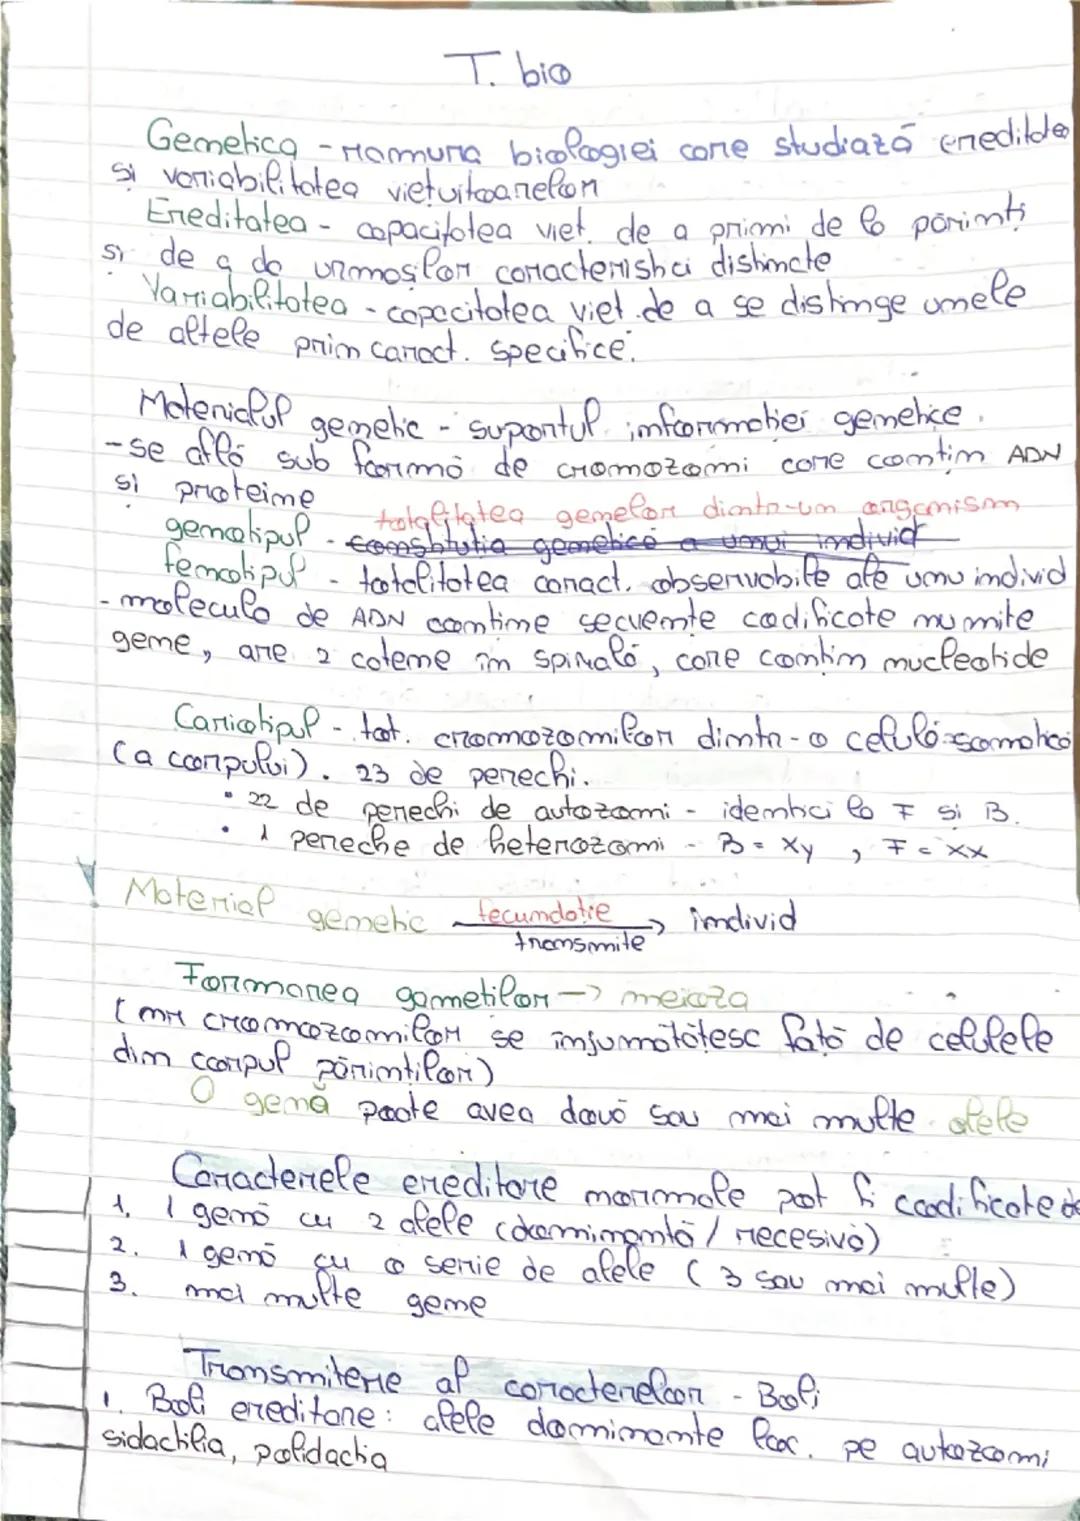 T. bio
Genetica - ramura biologiei care studiază ereditatea
și variabilitatea viețuitoarelor
Ereditatea - capacitatea viet. de a primi de la părinți
și de a da urmașilor caracteristici distincte
Variabilitatea - capacitatea viet. de a se distinge unele
de altele prin caract. specifice.
Materialul genetic - suportul informației genetice.
- se află sub formă de cromozomi care conțin ADN
și proteine
totalitatea genelor dintr-un organism
genotipul - constituția genetică a unui individ
fenotipul - totalitatea caract. observabile ale unu individ
- molecula de ADN conține secvențe codificate numite
gene, are 2 catene în spirală, care conțin nucleotide
Cariotipul - tot. cromozomilor dintr-o celulă somatică
(a corpului). 23 de perechi.
• 22 de perechi de autozomi - identici la F și B.
• 1 pereche de heterozomi - B = xy, F = xx
Material genetic fecundație → individ
transmite
Formarea gameților → meioza
(nr cromozomilor se înjumătățesc față de celulele
din corpul părinților)
O genă poate avea două sau mai multe alele
Caracterele ereditare normale pot fi codificate de
1. 1 genă cu 2 alele (dominantă / recesivă)
2. 1 genă cu o serie de alele (3 sau mai multe)
3. mai multe gene
Transmitere al caracterelor - Boli
1. Boli ereditare: alele dominante loc. pe autozomi
sidactilia, polidactia